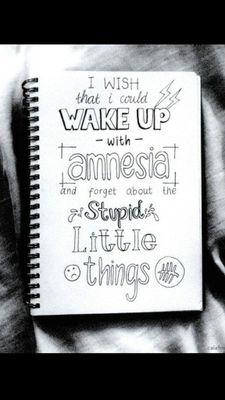 I WISH
that i could
WAKE UP
- with -
amnesia
and forget about the
Stupid
Little
things